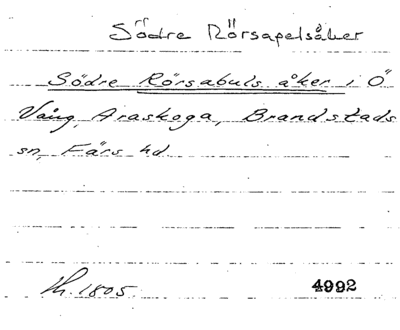 Södre Rörsapelsåker
Södre Rörsabuls åker i Ö
Vång, Araskoga, Brandstads
sn, Färs hd
th. 1805. 4992